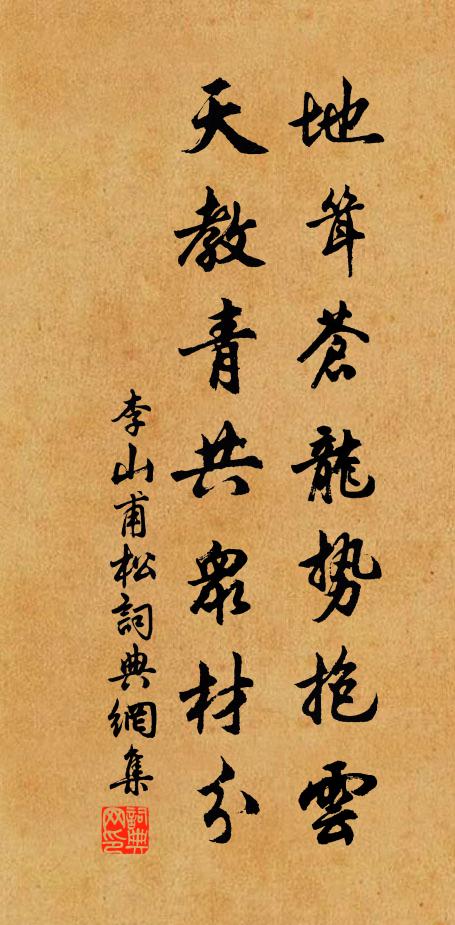 地聳蒼龍勢抱雲
天教青共眾材分
李山甫松詞典網集
詞典网印